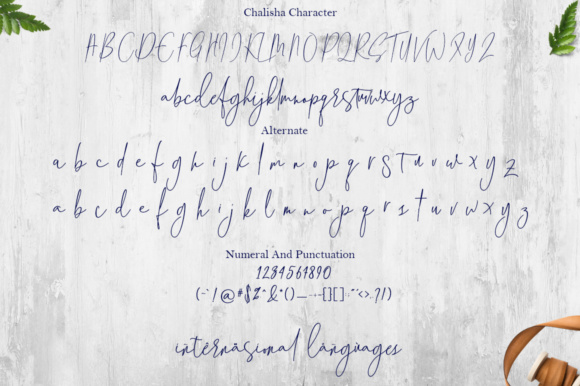 Chalisha Character
ABCDEFGHIJKLMNOPQRSTUVWXYZ
abcdefghijklmnopqrstuvwxyz
Alternate
a b c d e f g h i j k l m n o p q r s t u v w x y z
a b c d e f g h i j k l m n o p q r s t u v w x y z
Numeral And Punctuation
1234567890
internasional languages